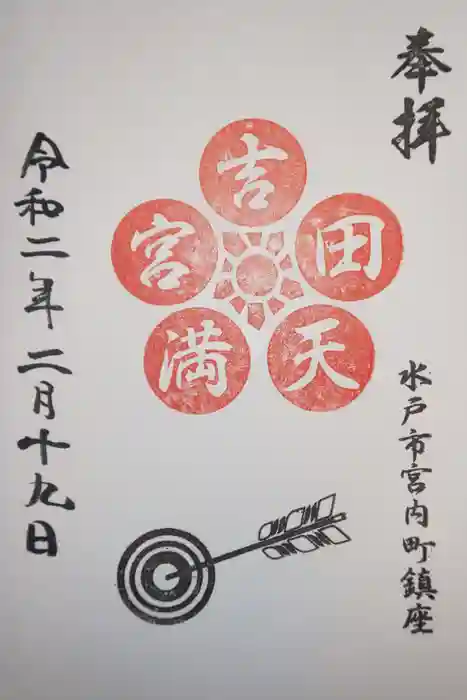 奉拝
水戸市宮内町鎮座
吉
田
天
満
宮
令和二年二月十九日